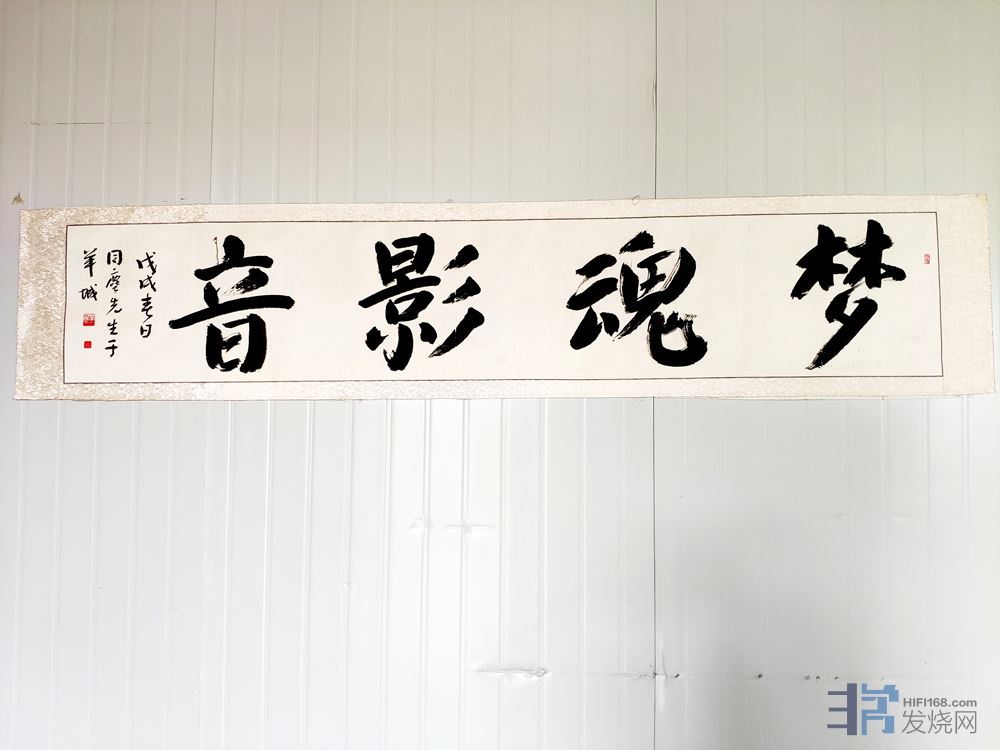 梦魂影音
戊戌春日
同尘先生于
羊城
HIFI168.com
发烧网